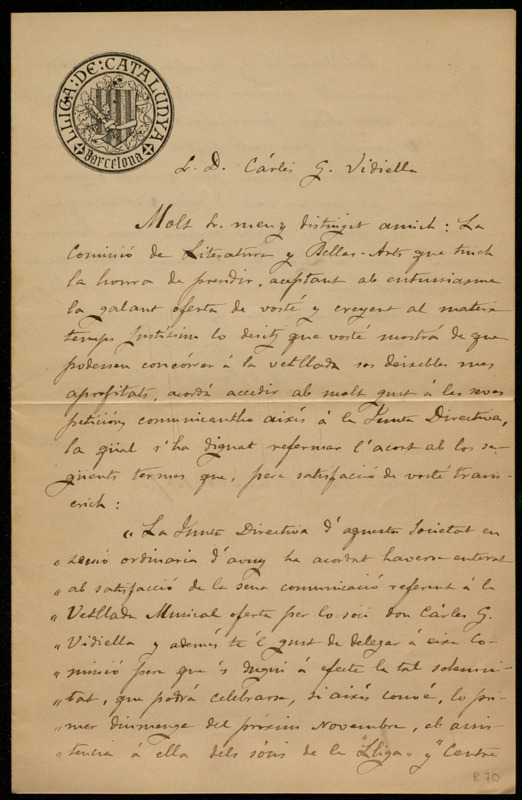 LLIGA:DE:CATALUNYA
Barcelona
S. D. Cárles G. Vidiella
Molt Sr. meu y distingit amich: La
Comissió de Literatura y Bellas-Arts que tinch
la honra de presidir, aceptant ab entussiasme
la galant oferta de vosté y creyent al mateix
temps justíssim lo desitj que vosté mostrá de que
podessen concórrer á la vetllada sos deixebles mes
aprofitats, acordá accedir ab molt gust á las sevas
peticións comunicantho aixís á la Junta Directiva,
la qüal s'ha dignat refermar l'acort ab los se-
güents termes que, pera satisfacció de vosté trans-
crich:
"La Junta Directiva d'aquesta Societat en
" sessió ordinaria d'avuy ha acordat haverse enterat
" ab satisfacció de la seva comunicació referent á la
" Vetllada Musical oferta per lo soci don Cárles G.
" Vidiella y además té 'l gust de delegar á eixa Co-
" missió pera que 's dugui á efecte la tal solemni-
" tat, que podrá celebrarse, si aixís convé, lo pri-
" mer diumenge del próxim Novembre, ab assis-
" tencia á ella dels sócis de la "Lliga" y "Centre
R. 70